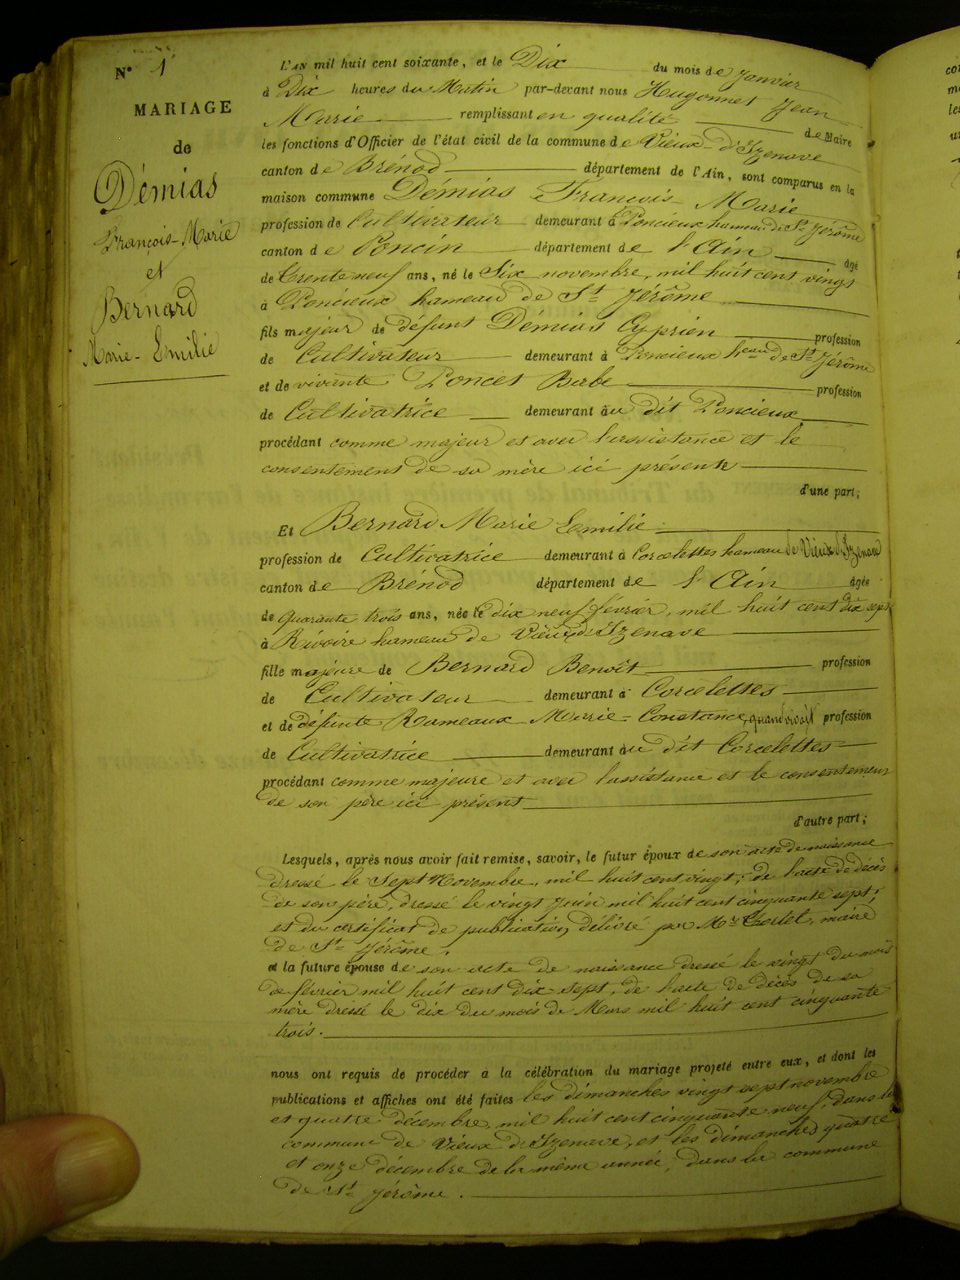 N° 1
MARIAGE
de
Démias
François-Marie
et
Bernard
Marie-Emilie
L'AN mil huit cent soixante, et le Dix du mois de Janvier
à Dix heures du Matin par-devant nous Hugonnet Jean
Marie remplissant en qualité de Maire
les fonctions d'Officier de l'état civil de la commune de Vieux-d'Izenave
canton de Brénod département de l'Ain, sont comparus en la
maison commune Démias François-Marie
profession de Cultivateur demeurant à Poncieux hameau de St Jérôme
canton de Poncin département de l'Ain âgé
de trente neuf ans, né le Six novembre, mil huit cent vingt
à Poncieux hameau de St Jérôme
fils majeur de défunt Démias Cyprien profession
de Cultivateur demeurant à Poncieux heau de St Jérôme
et de vivante Poncet Barbe profession
de Cultivatrice demeurant au dit Poncieux
procédant comme majeur et avec l'assistance et le
consentement de sa mère ici présente
d'une part;
Et Bernard Marie Emilie
profession de Cultivatrice demeurant à Corcelettes hameau de Vieux d'Izenave
canton de Brénod département de l'Ain âgée
de quarante trois ans, née le dix neuf février, mil huit cent dix sept
à Rivoire hameau de Vieux d'Izenave
fille majeure de Bernard Benoît profession
de Cultivateur demeurant à Corcelettes
et de défunte Rameaux Marie-Constance, quand vivait profession
de Cultivatrice demeurant au dit Corcelettes
procédant comme majeure et avec l'assistance et le consentement
de son père ici présent
d'autre part;
Lesquels, après nous avoir fait remise, savoir, le futur époux de son acte de naissance
dressé le Sept Novembre, mil huit cent vingt; de l'acte de décès
de son père, dressé le vingt Juin mil huit cent cinquante sept;
et du certificat de publication délivré par Mr maire
de St Jérôme.
et la future épouse de son acte de naissance dressé le vingt du mois
de février mil huit cent dix-sept, de l'acte de décès de sa
mère dressé le dix du mois de Mars mil huit cent cinquante
trois.
nous ont requis de procéder à la célébration du mariage projeté entre eux, et dont les
publications et affiches ont été faites les dimanches vingt sept novembre
et quatre décembre, mil huit cent cinquante neuf, dans la
commune de Vieux d'Izenave, et les dimanches quatre
et onze décembre de la même année, dans la commune
de St Jérôme.